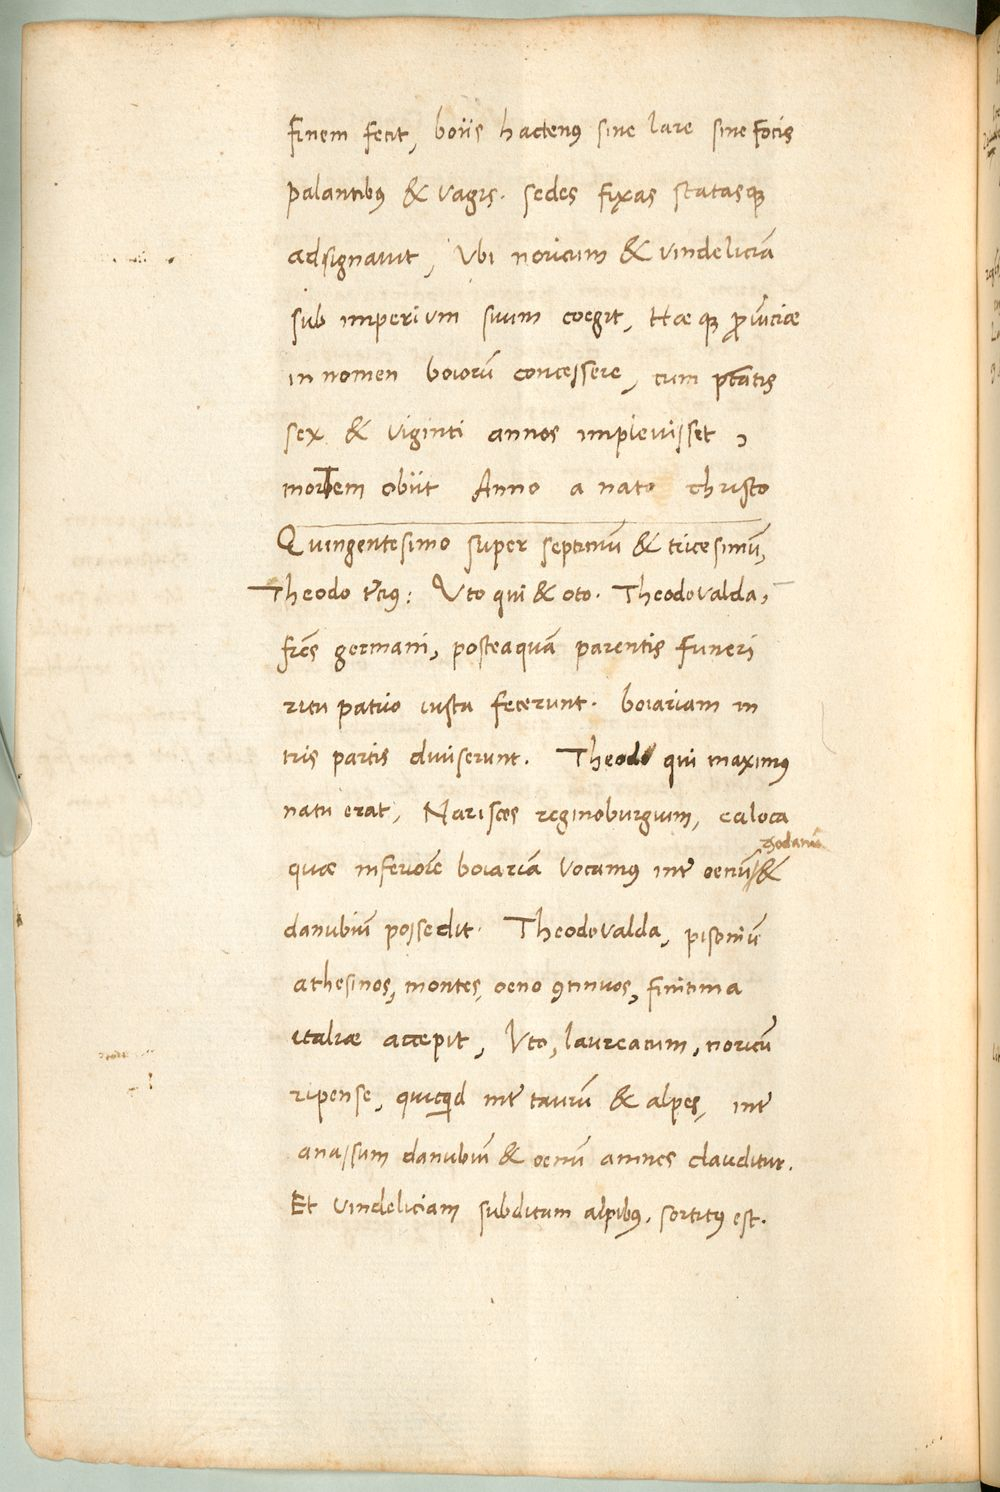 finem fecit, boiis hactenꝰ sine lare sine focis
palantibꝰ & vagis. sedes fixas statasqꝫ
adsignavit, Vbi noricum & vindeliciā
sub imperium suum coegit, Hae qꝫ ꝓvīciae
in nomen boiorū concessere, cum ptātis
sex & viginti annos implevisset,
mortem obiit Anno a nato christo
Quingentesimo super septimū & tricesimū,
Theodo tꝰcius: Vto qui & oto. Theodovalda,
frēs germani, posteaquā parentis funeri
ritu patrio iusta fecerunt. boiariam in
tris partis diviserunt. Theodo qui maximꝰ
natu erat, Nariscos reginoburgium, ea loca
quae inferiorē boiariā vocamus inter oenū &
danubiū possedit. Theodovalda, pisoniū
athesinos, montes, oeno ꝯtinuos, finitima
italiae accepit, Vto, laureacum, noricū
ripense, quicqͥd inter taurū & alpes, inter
anassum danubiū & oenū amnes clauditur.
Et vindeliciam subditam alpibꝰ. sortitꝰ est.